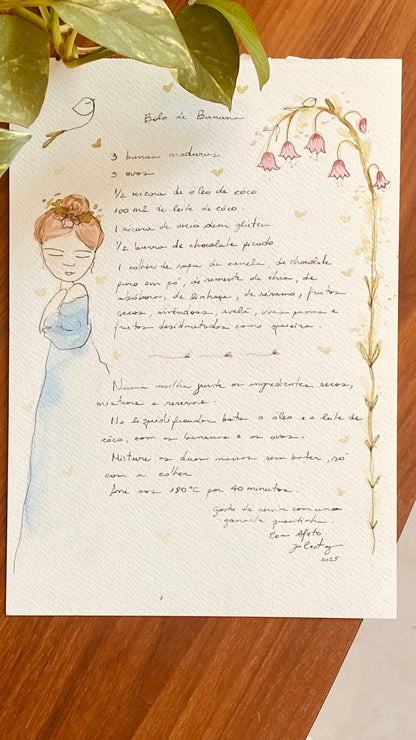 Bolo de Banana
3 bananas maduras
3 ovos
1/2 xícara de óleo de côco
100 ml de leite de côco
1 xícara de aveia sem glúten
1/2 barra de chocolate picado
1 colher de sopa de canela, de chocolate
puro em pó, de semente de chia, de
abóbora, de linhaça, de sésamo, frutos
secos, amêndoas, avelã, uvas passas e
frutos desidratados como queira.
Numa vasilha junte os ingredientes secos,
misture e reserve.
No liquidificador bata o óleo e o leite de
côco, com as bananas e os ovos.
Misture as duas massas sem bater, só
com a colher.
Asse aos 180°C por 40 minutos.
Gosto de servir com uma
ganache quentinha.
Com Afeto
2025